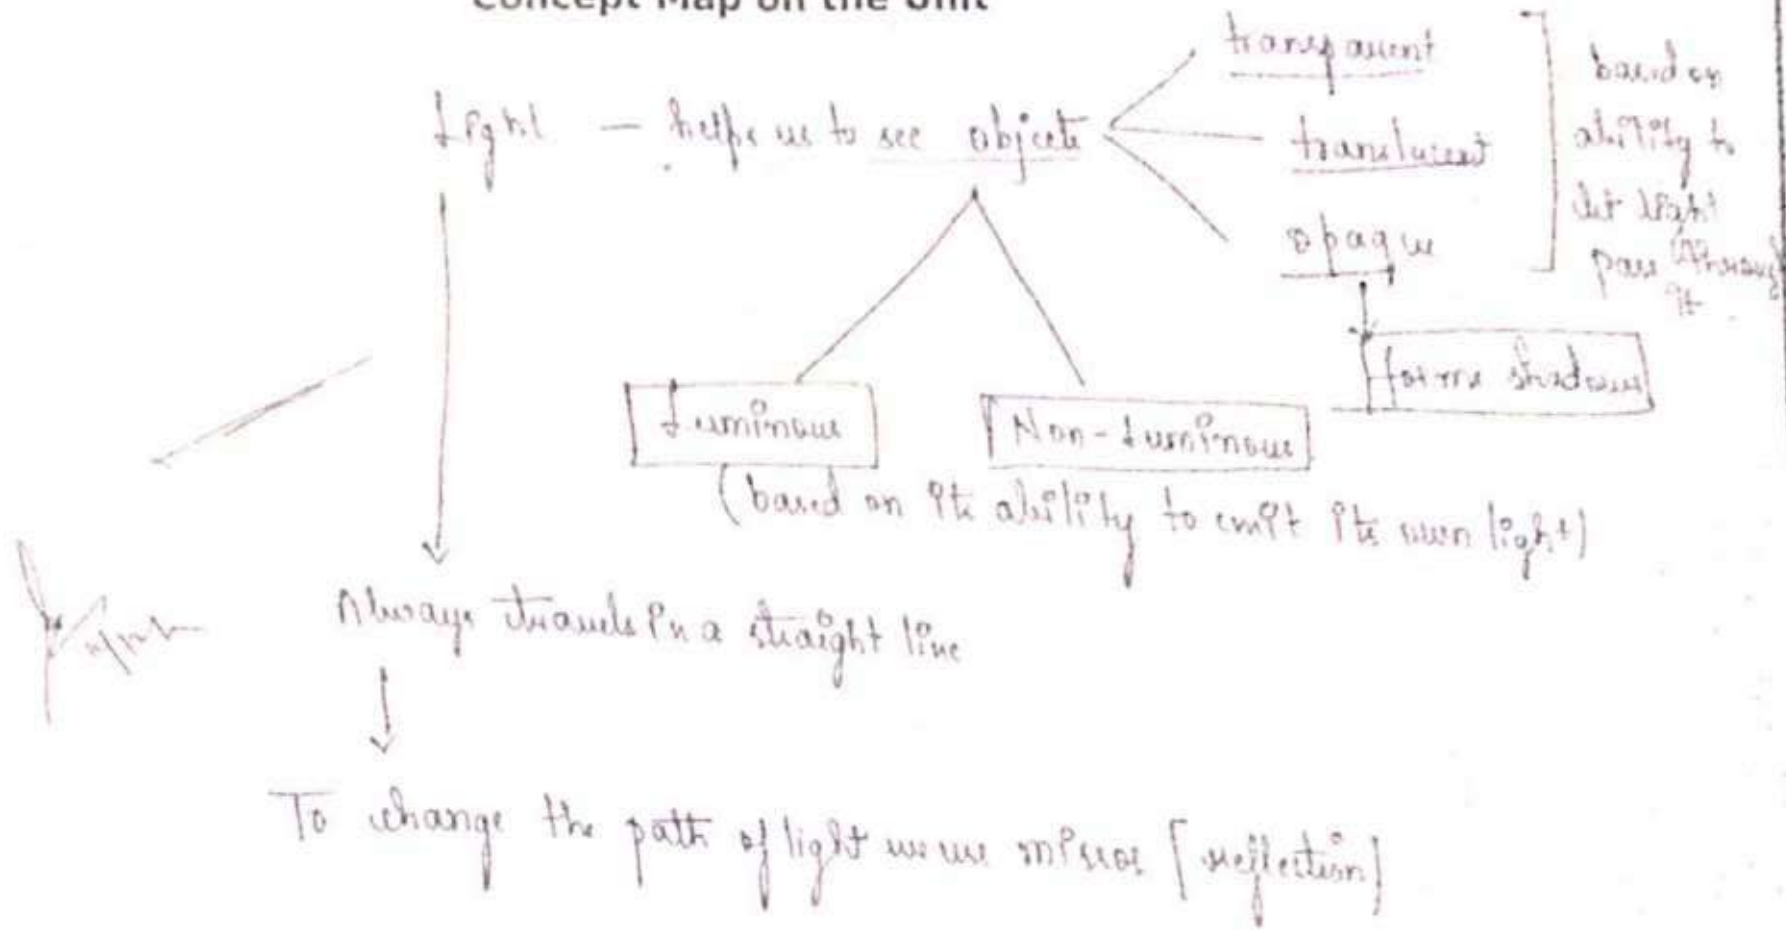 Concept Map on the Unit
Light — helps us to see objects
transparent
translucent
opaque
based on
ability to
let light
pass through
it
forms shadows
Luminous
Non-Luminous
(based on its ability to emit its own light)
Always travels in a straight line
To change the path of light we use mirror [reflection]